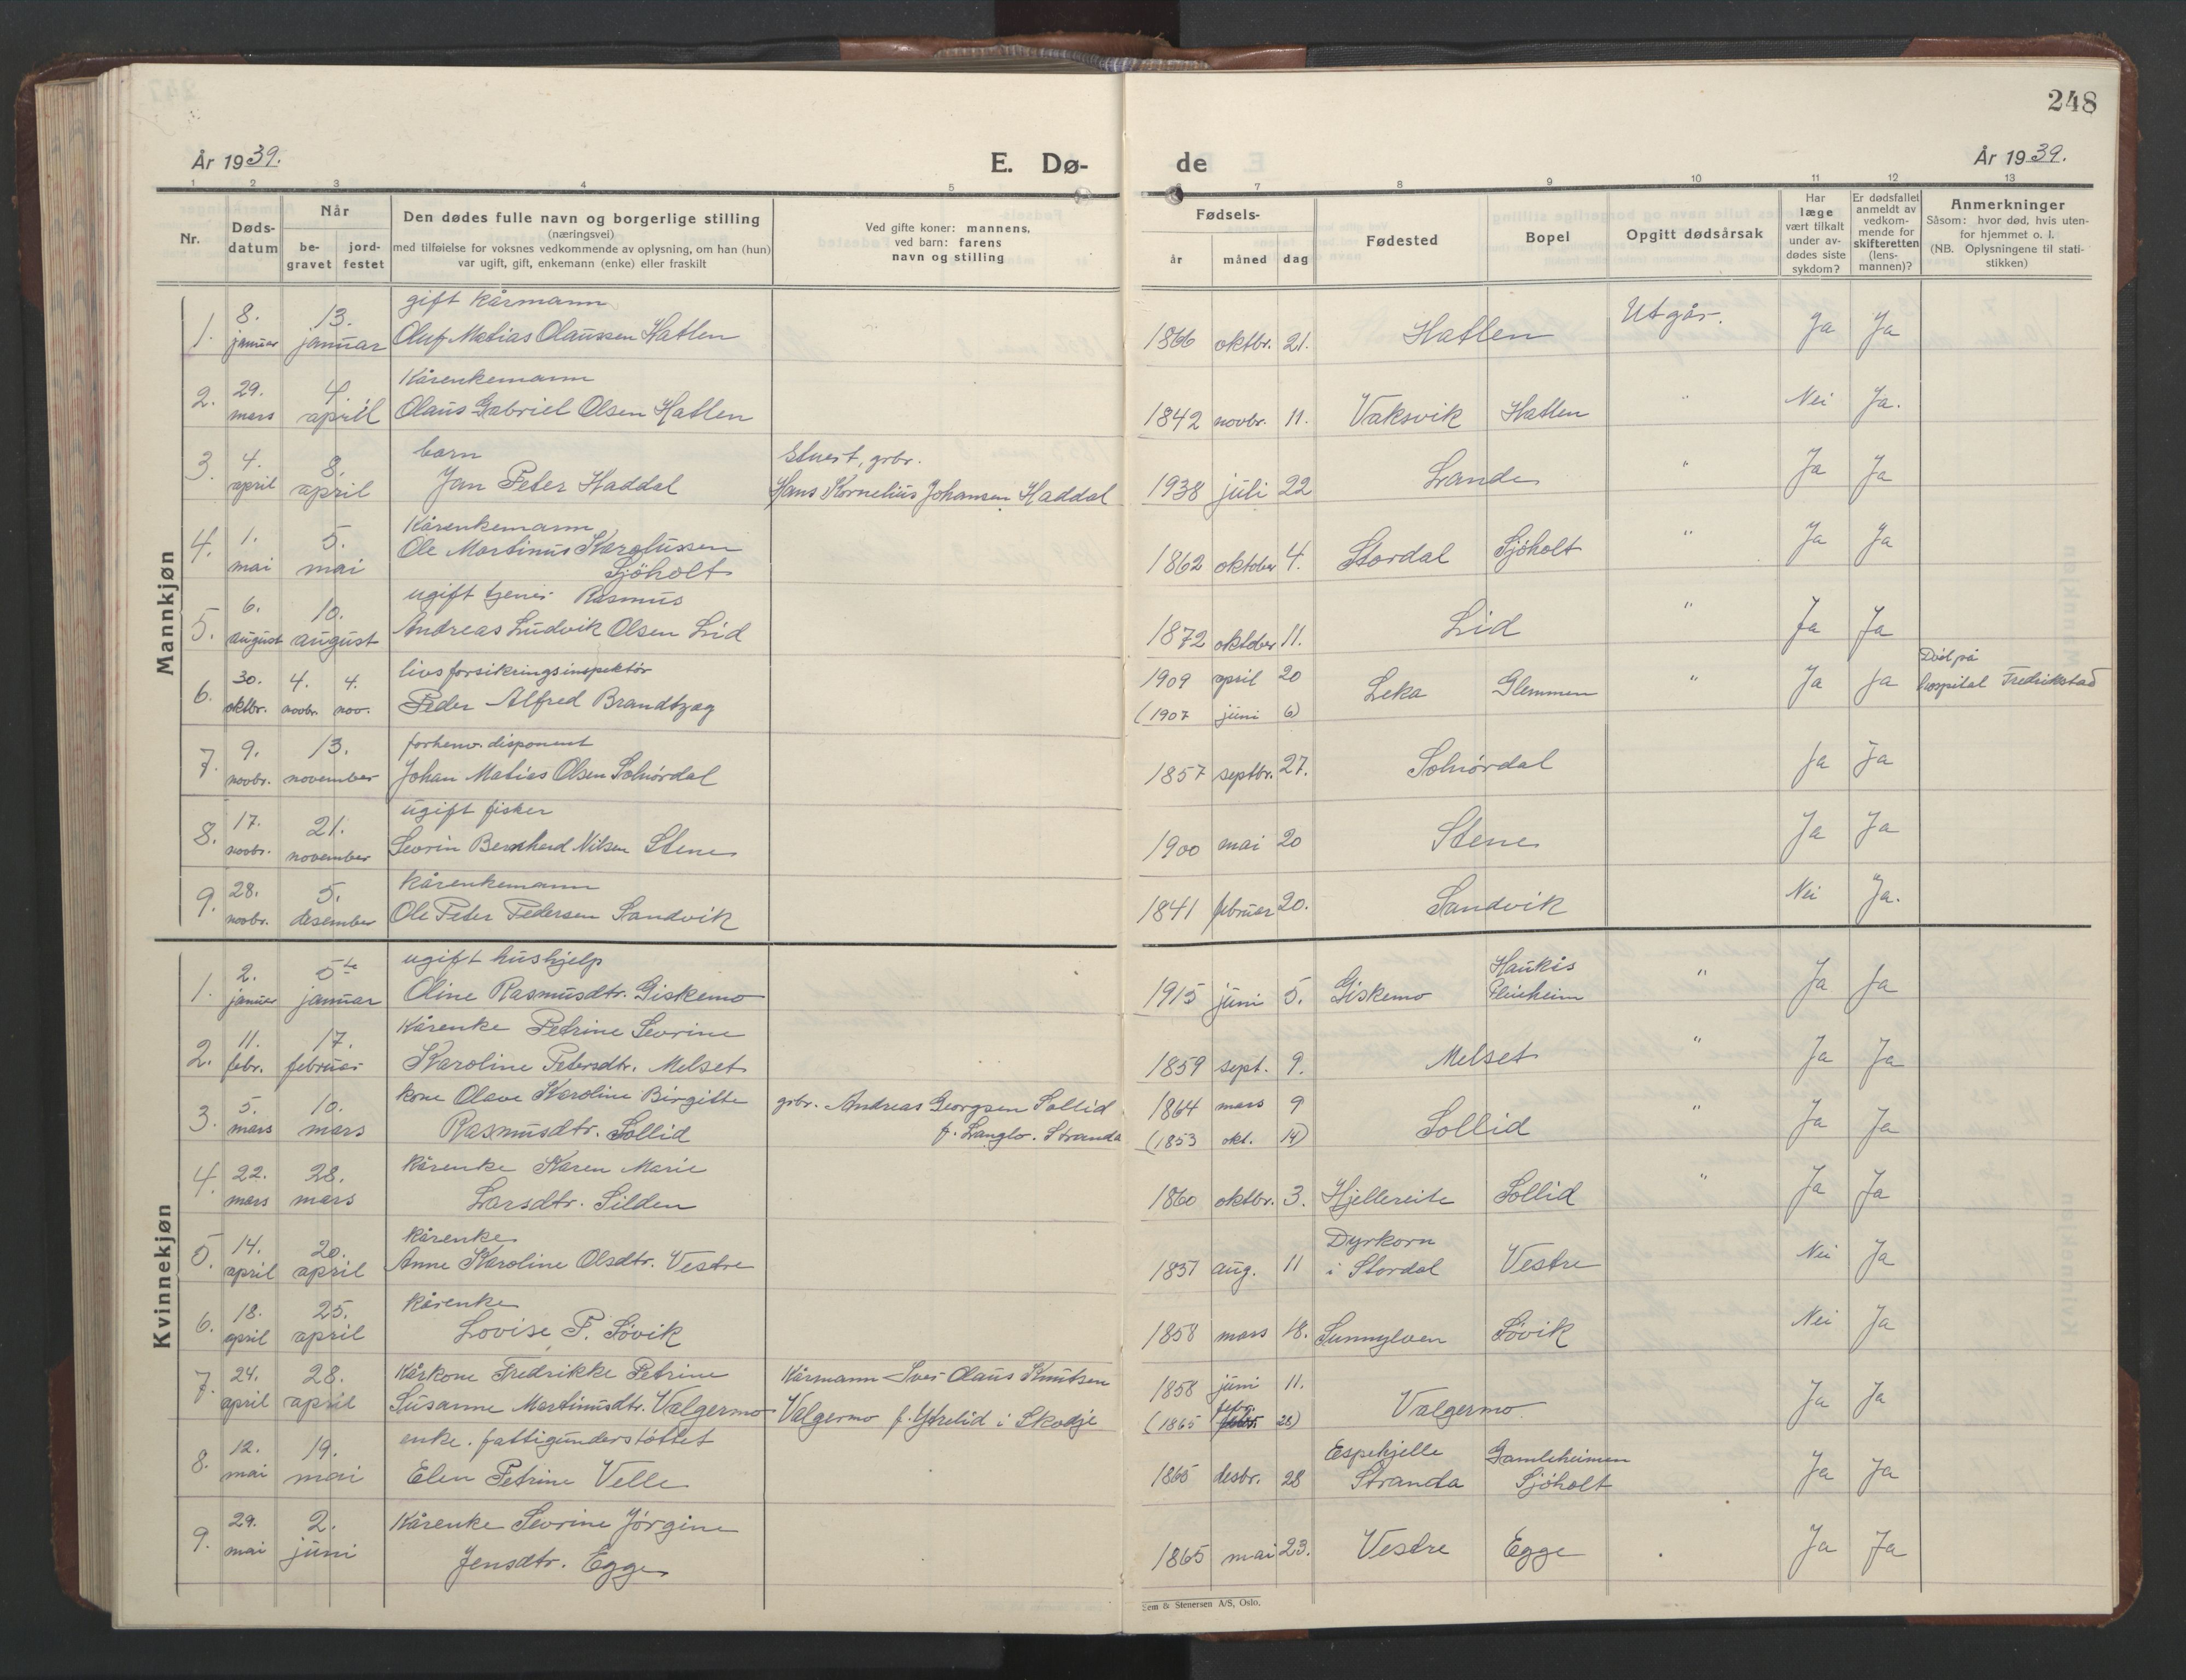 248
År 1939.
E. Dø-
de
År 1939.
1 2 3 4 5 6 7 8 9 10 11 12 13
Nr.
Døds-
datum
Når
be-
gravet
jord-
festet
Den dødes fulle navn og borgerlige stilling
(næringsvei)
med tilføielse for voksnes vedkommende av oplysning, om han (hun)
var ugift, gift, enkemann (enke) eller fraskilt
Ved gifte koner: mannens,
ved barn: farens
navn og stilling
Fødsels-
år måned dag
Fødested
Bopel
Opgitt dødsårsak
Har
læge
vært tilkalt
under av-
dødes siste
sykdom?
Er dødsfallet
anmeldt av
vedkom-
mende for
skifteretten
(lens-
mannen)?
Anmerkninger
Såsom: hvor død, hvis uten-
for hjemmet o. l.
(NB. Oplysningene til stati-
stikken)
Mannkjøn
gift kårmann
1. 8. januar 13. januar Oluf Matias Olaussen Hatlen 1866 oktbr. 21. Hatlen Utgår. Ja Ja
Kårenkemann
2. 29. mars 4. april Olaus Gabriel Olsen Hatlen 1842 novbr. 11. Vaksvik Hatlen " Nei Ja.
barn
Stuert, grbr.
3. 4. april 8. april Jan Peter Haddal Hans Kornelius Johansen Haddal 1938 juli 22 Lande " Ja Ja
Kårenkemann
4. 1. mai 5. mai Ole Martinus Karolussen 1862 oktober 4. Stordal Sjöholt " Ja Ja
Sjöholt
ugift Rasmus
5. 6. august 10. august Andreas Ludvik Olsen Lid 1872 oktober 11. Lid " Ja Ja
livsforsikringsinspektör
6. 30. oktbr. 4. novbr. 4. nov. Peder Alfred Brandtzæg 1909 april 20 Leka Glemmen " Ja Ja Död på
hospital Fredrikstad
(1907 juni 6)
forhenv. disponent
7. 9. novbr. 13. november Johan Matias Olsen Solnördal 1857 septbr. 27. Solnördal Ja Ja
ugift fisker
8. 17. novbr. 21. november Sevrin Bernhard Nilsen Stene 1900 mai 20 Stene Ja Ja
Kårenkemann
9. 28. novbr. 5. desember Ole Peter Pedersen Sandvik 1841 februar 20. Sandvik Nei Ja.
Kvinnekjøn
ugift hushjelp
1. 2. januar 5te januar Oline Rasmusdtr. Giskemo 1915 juni 5. Giskemo Haukås " Ja Ja
Kårenke Petrine Sevrine
2. 11. febr. 17. februar Karoline Petersdtr. Melset 1859 sept. 9. Melset " Ja Ja
kone Olave Karoline Birgitte grbr. Andreas Georgsen Sollid 1864 mars 9
3. 5. mars 10. mars Rasmusdtr. Sollid f. Langlo. Stranda (1853 okt. 14) Sollid " Ja Ja
Kårenke Karen Marie
4. 22. mars 28. mars Larsdtr. Silden 1860 oktbr. 3. Hjellereite Sollid " Ja Ja
Kårenke
Dyrkorn
5. 14. april 20. april Anne Karoline Olsdtr. Vestre 1857 aug. 11 i Stordal Vestre Nei Ja
Kårenke
6. 18. april 25. april Lovise P. Sövik 1858 mars 18. Sunnylven Sövik Nei Ja
Kårkone Fredrikke Petrine Kårmann Iver Olaus Knutsen 1858 juni 11.
7. 24. april 28. april Susanne Martinusdtr. Valgermo Valgermo f. Ytrelid i Skodje (1865 febr. 28) Valgermo Ja Ja
enke. fattigunderstöttet
Espehjelle Gamleheimen
8. 12. mai 19. mai Elen Petrine Velle 1865 desbr. 28 Stranda Sjöholt Ja Ja
Kårenke Sevrine Jörgine
9. 29. mai 2. juni Jensdtr. Egge 1865 mai 23. Vestre Egge Ja Ja
Sem & Stenersen A/S, Oslo.